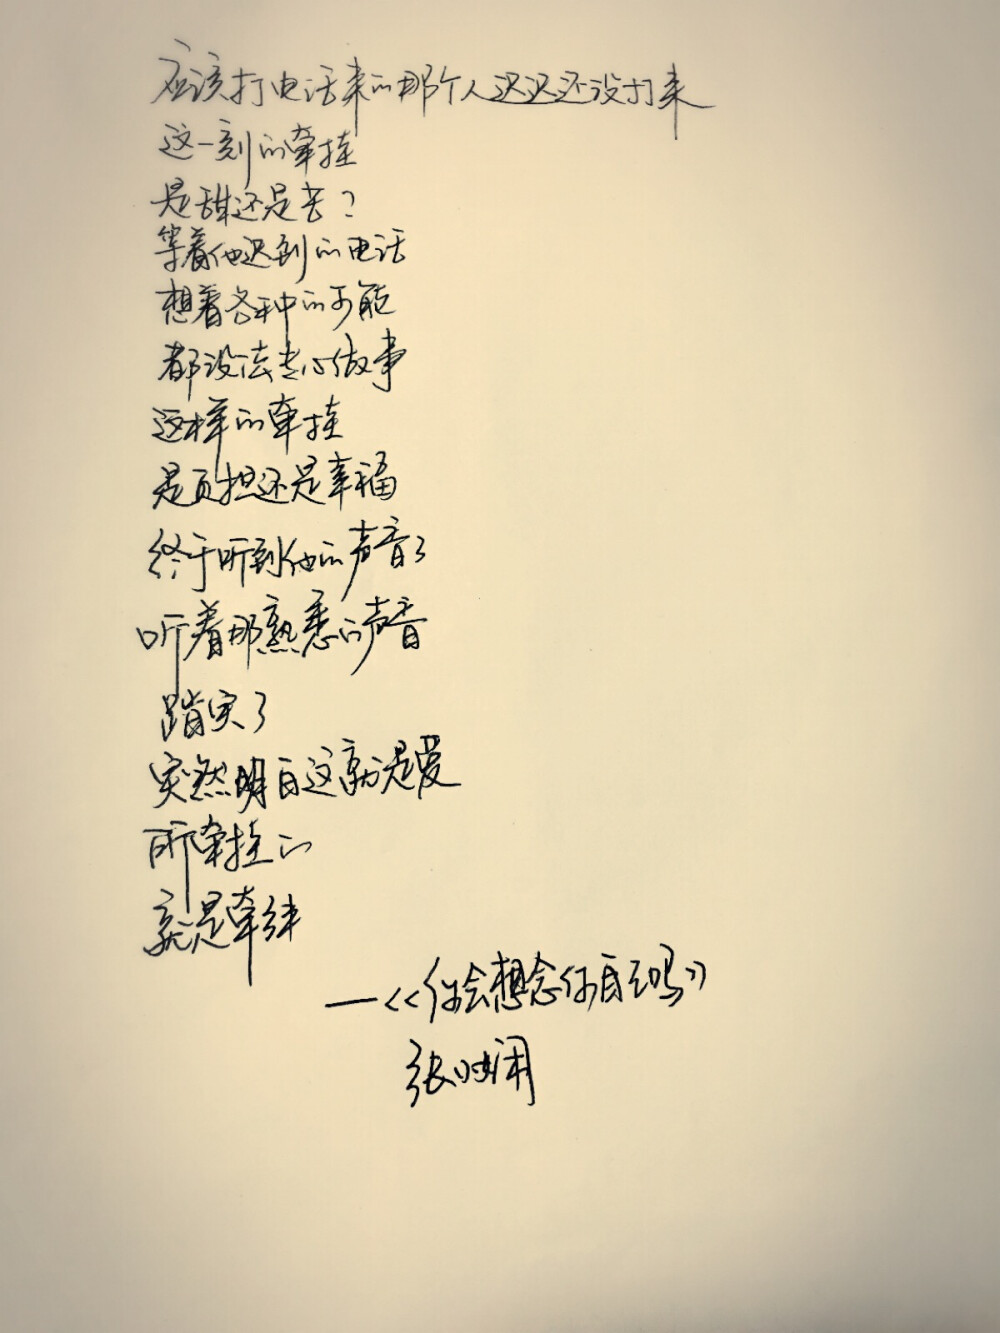 应该打电话来的那个人迟迟还没打来
这一刻的牵挂
是甜还是苦？
等着他迟到的电话
想着各种的可能
都没法专心做事
这样的牵挂
是负担还是幸福
终于听到他的声音了
听着那熟悉的声音
踏实了
突然明白这就是爱
所牵挂的
就是牵绊
——《你会想念你自己吗》
张小娴